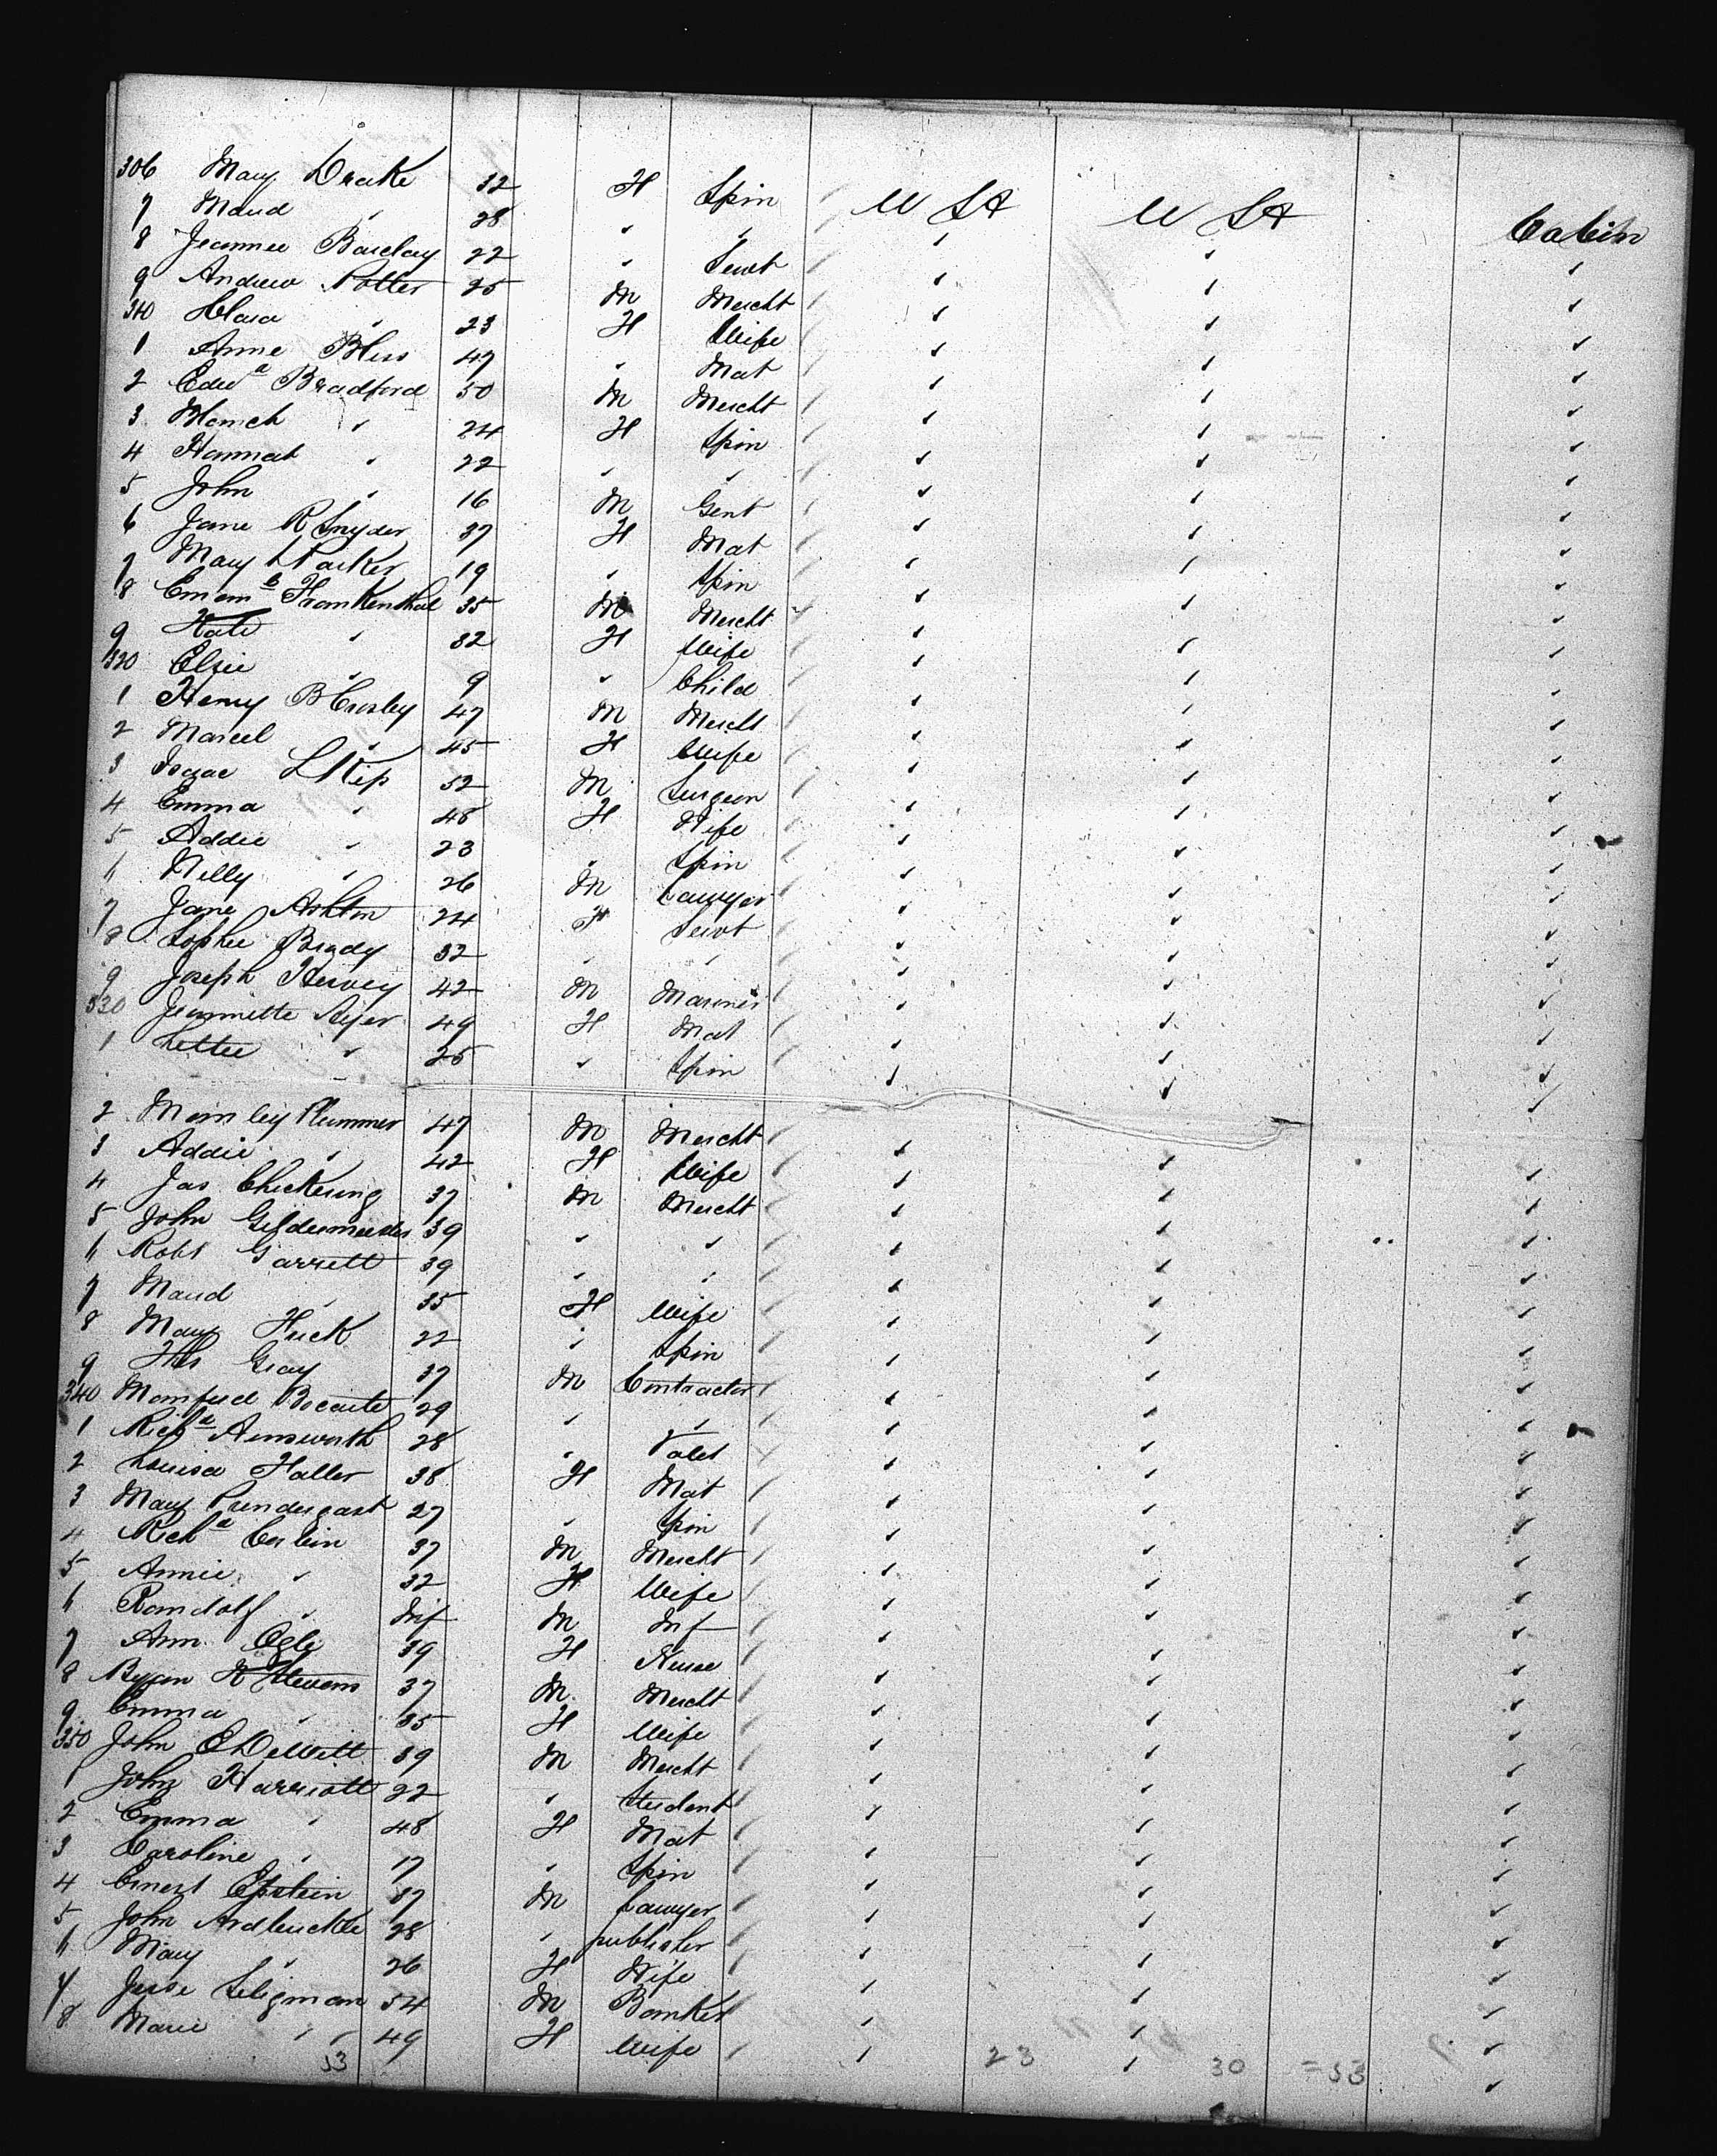 306 Mary Drake 32 F Spin U SA U SA Cabin
7 Maud " 28 " "
8 Jeannee Barclay 22 " Servt
9 Andrew Potter 25 M Mercht
310 Clara " 23 F Wife
1 Anne Bliss 47 " Mat
2 Edwd Bradford 50 M Mercht
3 Blanch " 24 F Spin
4 Hannah " 22 " "
5 John " 16 M Gent
6 Jane R Snyder 37 F Mat
7 Mary L Parker 19 " Spin
8 Frankenthal 35 M Mercht
9 Kate " 32 F Wife
320 Elsie " 9 " Child
1 Henry B Crosley 47 M Mercht
2 Marcel " 45 F Wife
3 Isaac L Kip 52 M Surgeon
4 Emma " 48 F Wife
5 Addie " 23 " Spin
6 Willy " 26 M Lawyer
7 Jane Ashton 24 F Servt
8 Sophie Brady 32 " "
9 Joseph Hervey 42 M Mariner
330 Jeannette Ayer 49 F Mat
1 Lettee " 25 " Spin
2 Plummer 47 M Mercht
3 Addie " 42 F Wife
4 Jas Chickering 37 M Mercht
5 John Gildermeester 39 " "
6 Robt Garrett 39 " "
7 Maud " 35 F Wife
8 Mary Huck 22 " Spin
9 Ths Gray 37 M Contractor
340 29 " "
1 Richd Ainsworth 28 " Valet
2 Louisa Haller 38 F Mat
3 Mary Prendergast 27 " Spin
4 Richd Corbin 37 M Mercht
5 Annie " 32 F Wife
6 Randolf " Inf M Inf
7 Ann Ogle 39 F Nurse
8 Byam K Stevens 37 M Mercht
9 Emma " 35 F Wife
350 John E DeWitt 39 M Mercht
1 John Harriott 22 " Student
2 Emma " 48 F Mat
3 Caroline " 17 " Spin
4 Ernest Epstein 37 M Lawyer
5 John Ardbuckle 28 " publisher
6 Mary " 26 F Wife
7 Jesse Seligman 54 M Banker
8 Marie " " 49 F Wife
53 23 30 = 53